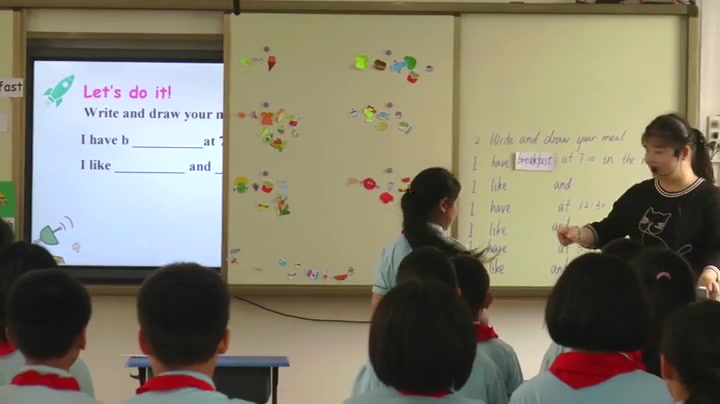 fast
Let's do it!
Write and draw your m
I have b __________ at 7
I like __________ and _
2. Write and draw your meal
I have breakfast at 7:00 in the
I like and
I have at 12:30
I like and
I have
like an